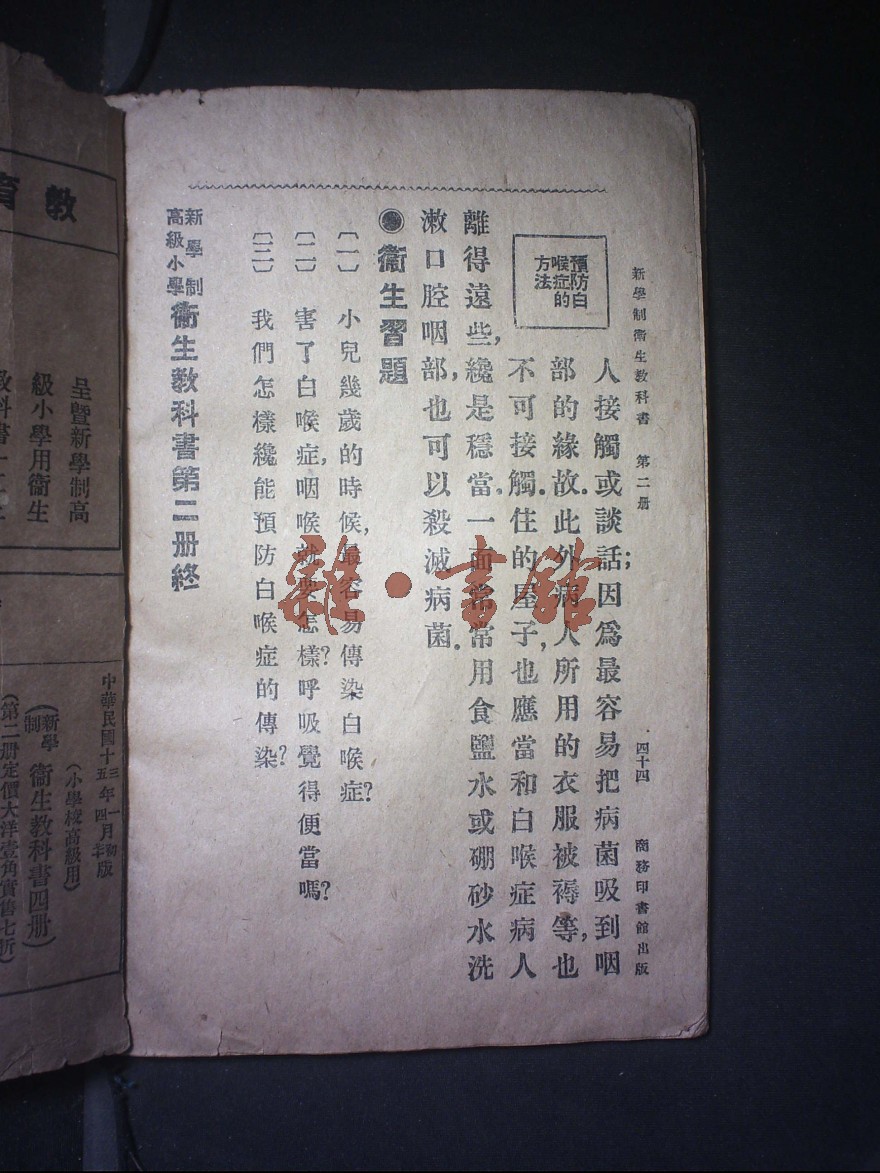 新學制衞生教科書　第二册　四十四　商務印書館出版
預防白
喉症的
方法
人接觸或談話；因爲最容易把病菌吸到咽
部的緣故。此外病人所用的衣服被褥等，也
不可接觸。住的屋子，也應當和白喉症病人
離得遠些，纔是穩當。一面常常用食鹽水或硼砂水洗
漱口腔咽部，也可以殺滅病菌。
◉衞生習題
〔一〕　小兒幾歲的時候，最容易傳染白喉症？
〔二〕　害了白喉症，咽喉就要怎樣？呼吸覺得便當嗎？
〔三〕　我們怎樣纔能預防白喉症的傳染？
新學制
高級小學
衞生教科書第二册終
雜·書館
教育
呈暨新學制高
級小學用衞生
教科書
中華民國十三年一月初版
十五年四月
新學制
衞生教科書四册
（小學校高級用）
（第二册定價大洋壹角實售七折）